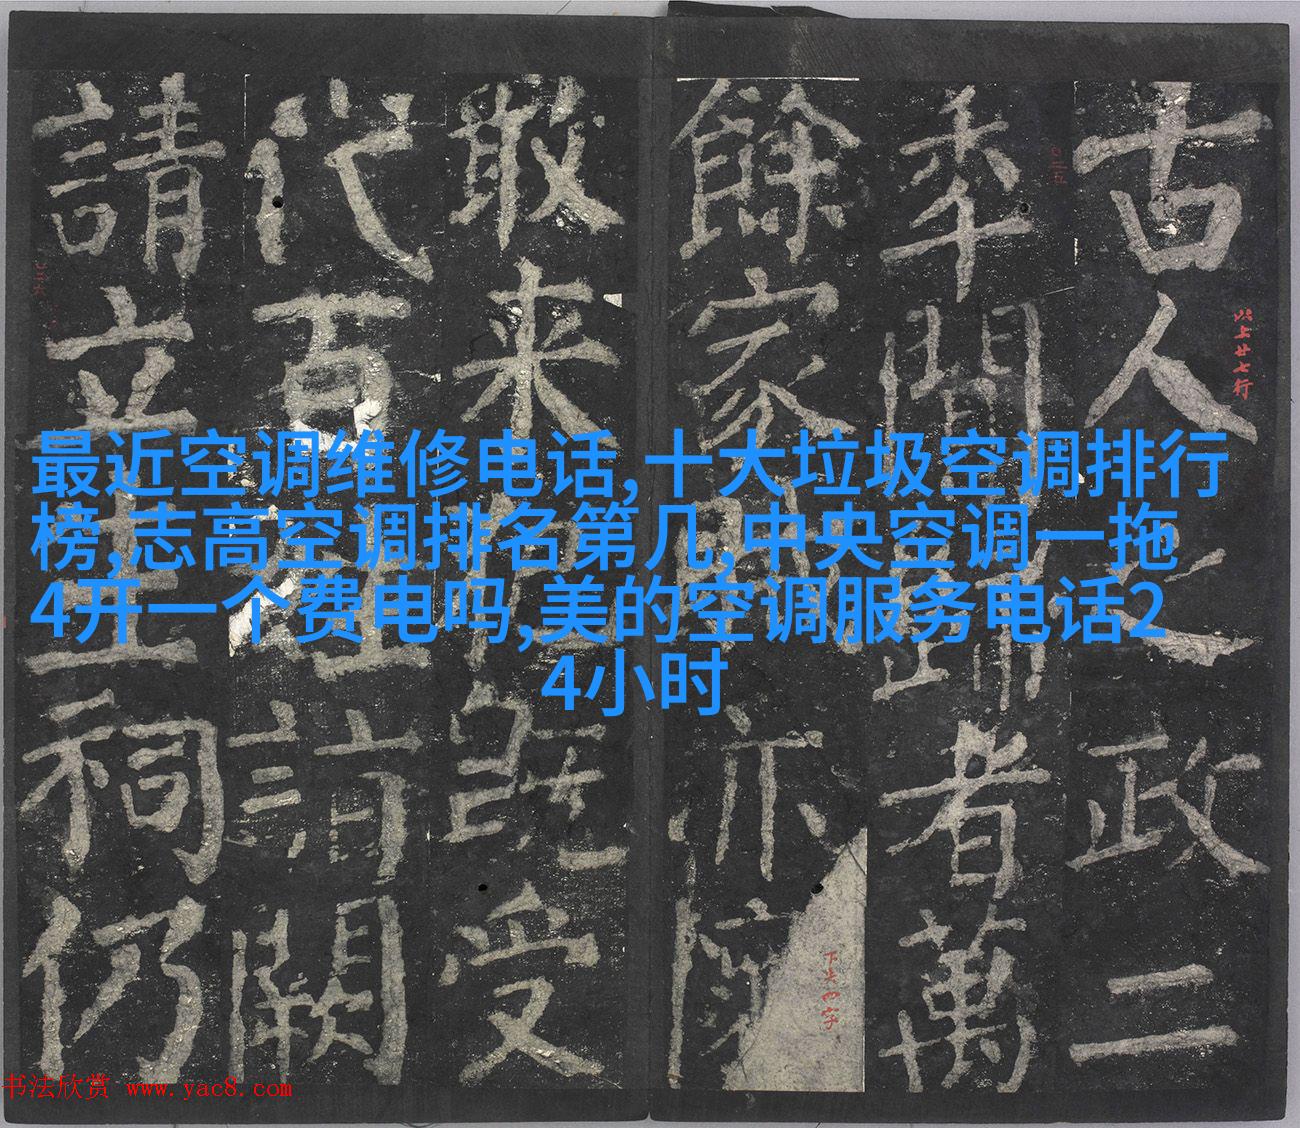 古人之政二
年閒歸者萬
餘家
亦
敢来
既受
代百姓詣闕
請立生祠仍
以上廿七行
下失四字
最近空调维修电话,十大垃圾空调排行
榜,志高空调排名第几,中央空调一拖
4开一个费电吗,美的空调服务电话2
4小时
书法欣赏 www.yac8.com